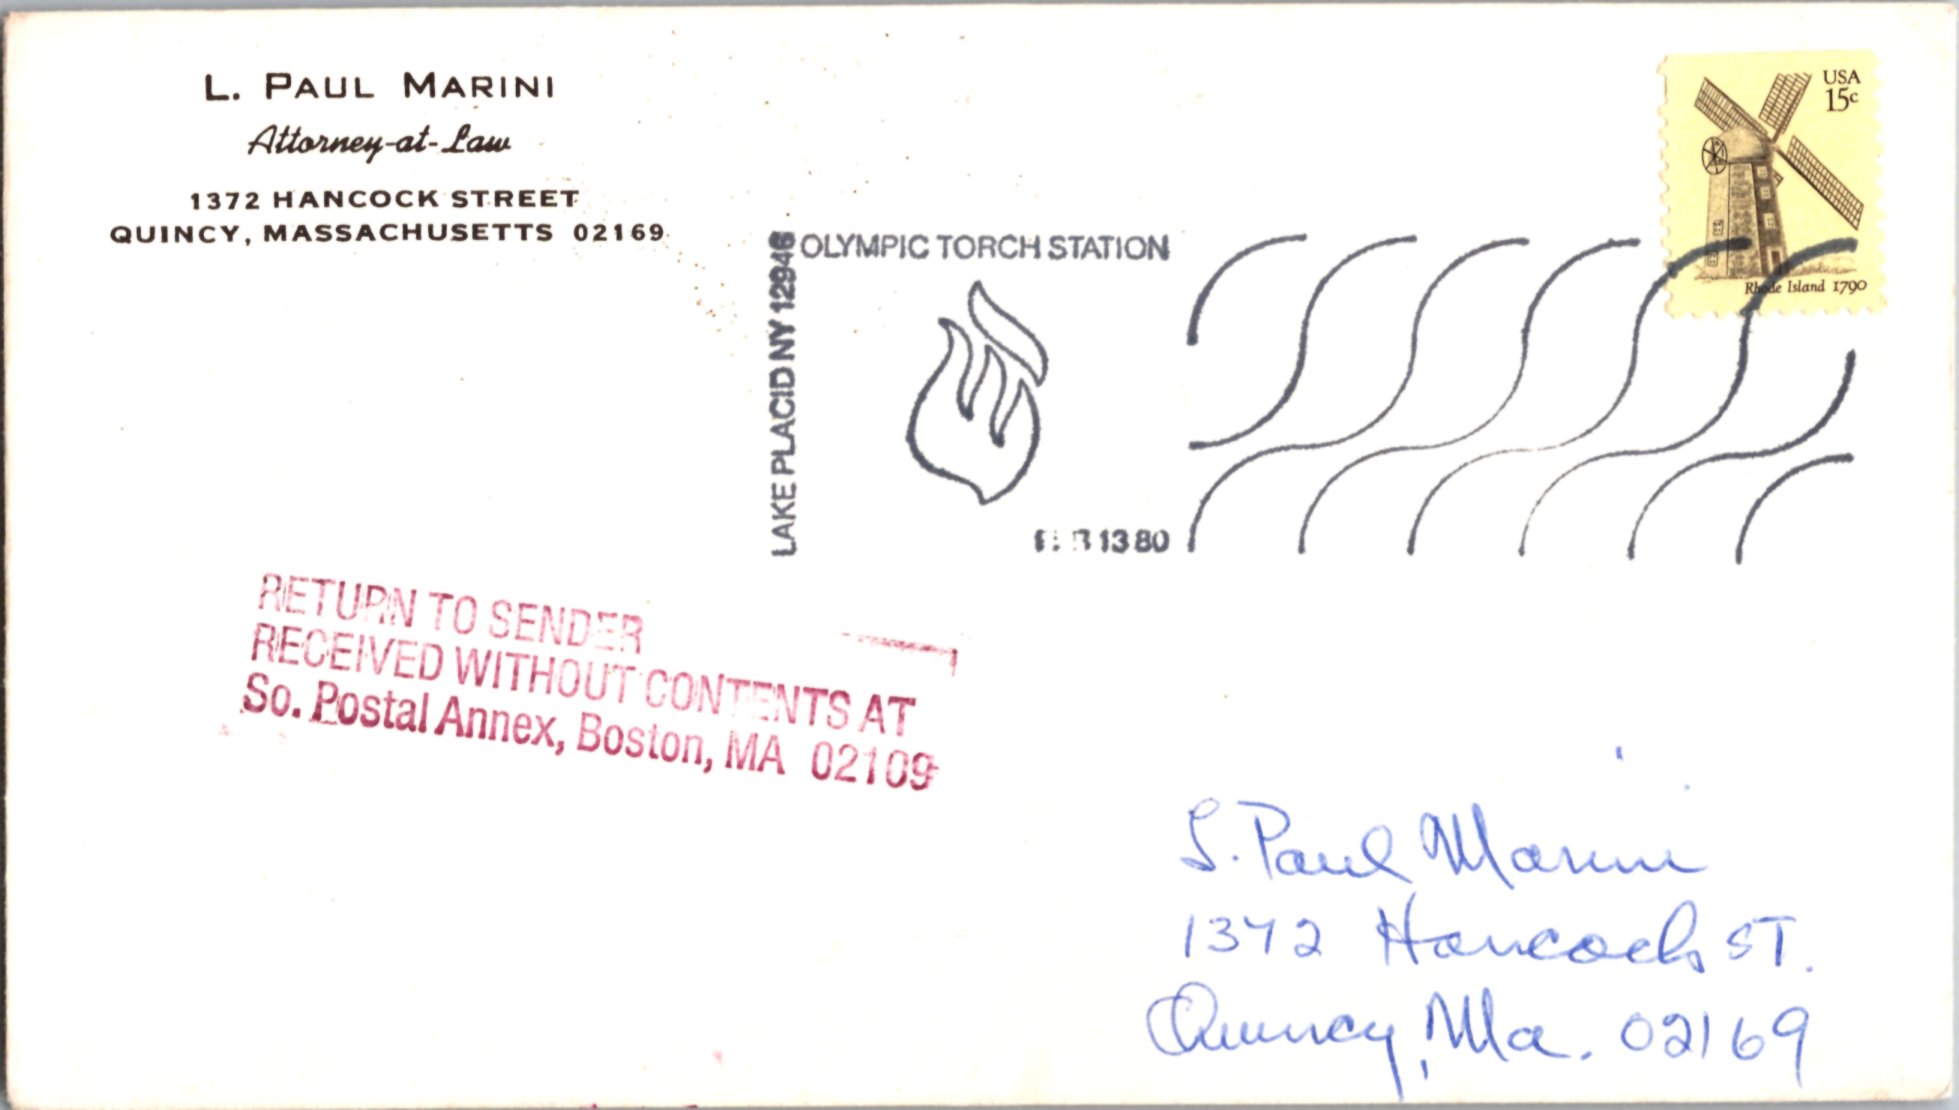 L. PAUL MARINI
Attorney-at-Law
1372 HANCOCK STREET
QUINCY, MASSACHUSETTS 02169
USA
15c
Rhode Island 1790
LAKE PLACID NY 12946
OLYMPIC TORCH STATION
FEB 13 80
RETURN TO SENDER
RECEIVED WITHOUT CONTENTS AT
So. Postal Annex, Boston, MA 02109
L. Paul Marini
1372 Hancock ST.
Quincy, Ma. 02169